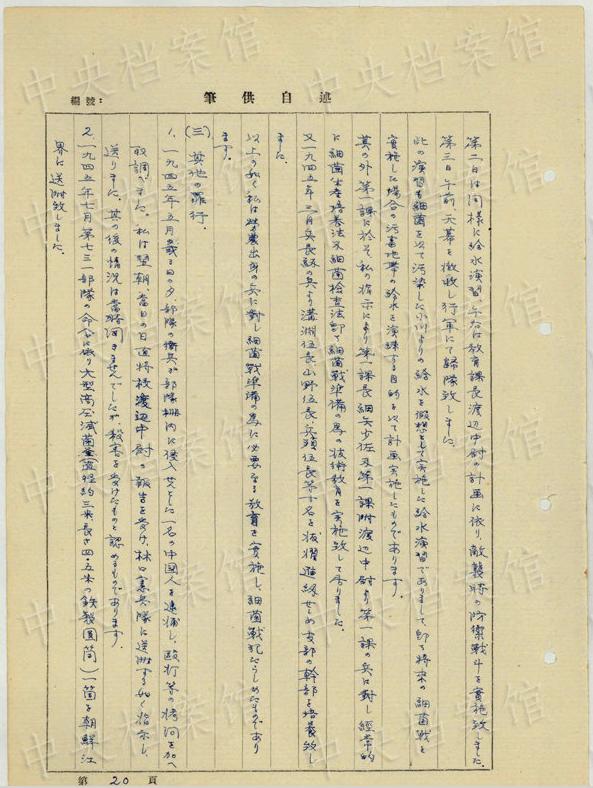 編號：
筆供自述
第二日は同様に給水演習、午后は教育課長渡辺中尉の計画に依り、敵襲時の防禦戦斗を実施致しました。
第三日午前天幕を撤収し行軍にて帰隊致しました。
此の演習も細菌を以て汚染した小川よりの給水を假想として実施した給水演習でありまして、即ち将来の細菌戦を
実施した場合の汚毒地帯の給水を演練する目的を以て計画実施したものであります。
其の外第一課に於て私の指示により第一課長細矢少佐及第一課附渡辺中尉より第一課の兵に対し経常的
に細菌生産培養法及細菌検査法即ち細菌戦準備の為の技術教育を実施致して居りました。
又一九四五年三月兵長級の兵より溝渕伍長、山野伍長、兵頭伍長等十名を抜擢進級せしめ支部の幹部を培養致し
ました。
以上の如く私は出身の兵に對し細菌戦準備の為に必要なる教育を実施し、細菌戦犯たらしめたものであり
ます。
(三) 其他の罪行.
1. 一九四五年五月或る日の夕、部隊の衛兵が部隊柵内に侵入せんとした一名の中国人を逮捕し、殴打等の拷問を加へ
取調べました。私は翌朝、当日の日直将校渡辺中尉の報告を受け、林口憲兵隊に送附する如く指示し、
送りました。其の後の情況は當時聞きませんでしたが、殺害を受けたものと認めるものであります。
2. 一九四五年七月第七三一部隊の命令に依り大型高圧滅菌釜(直径約三米長さ四・五米の鉄製圓筒)一箇を朝鮮江
界に送附致しました。
第 20 頁
中央档案馆